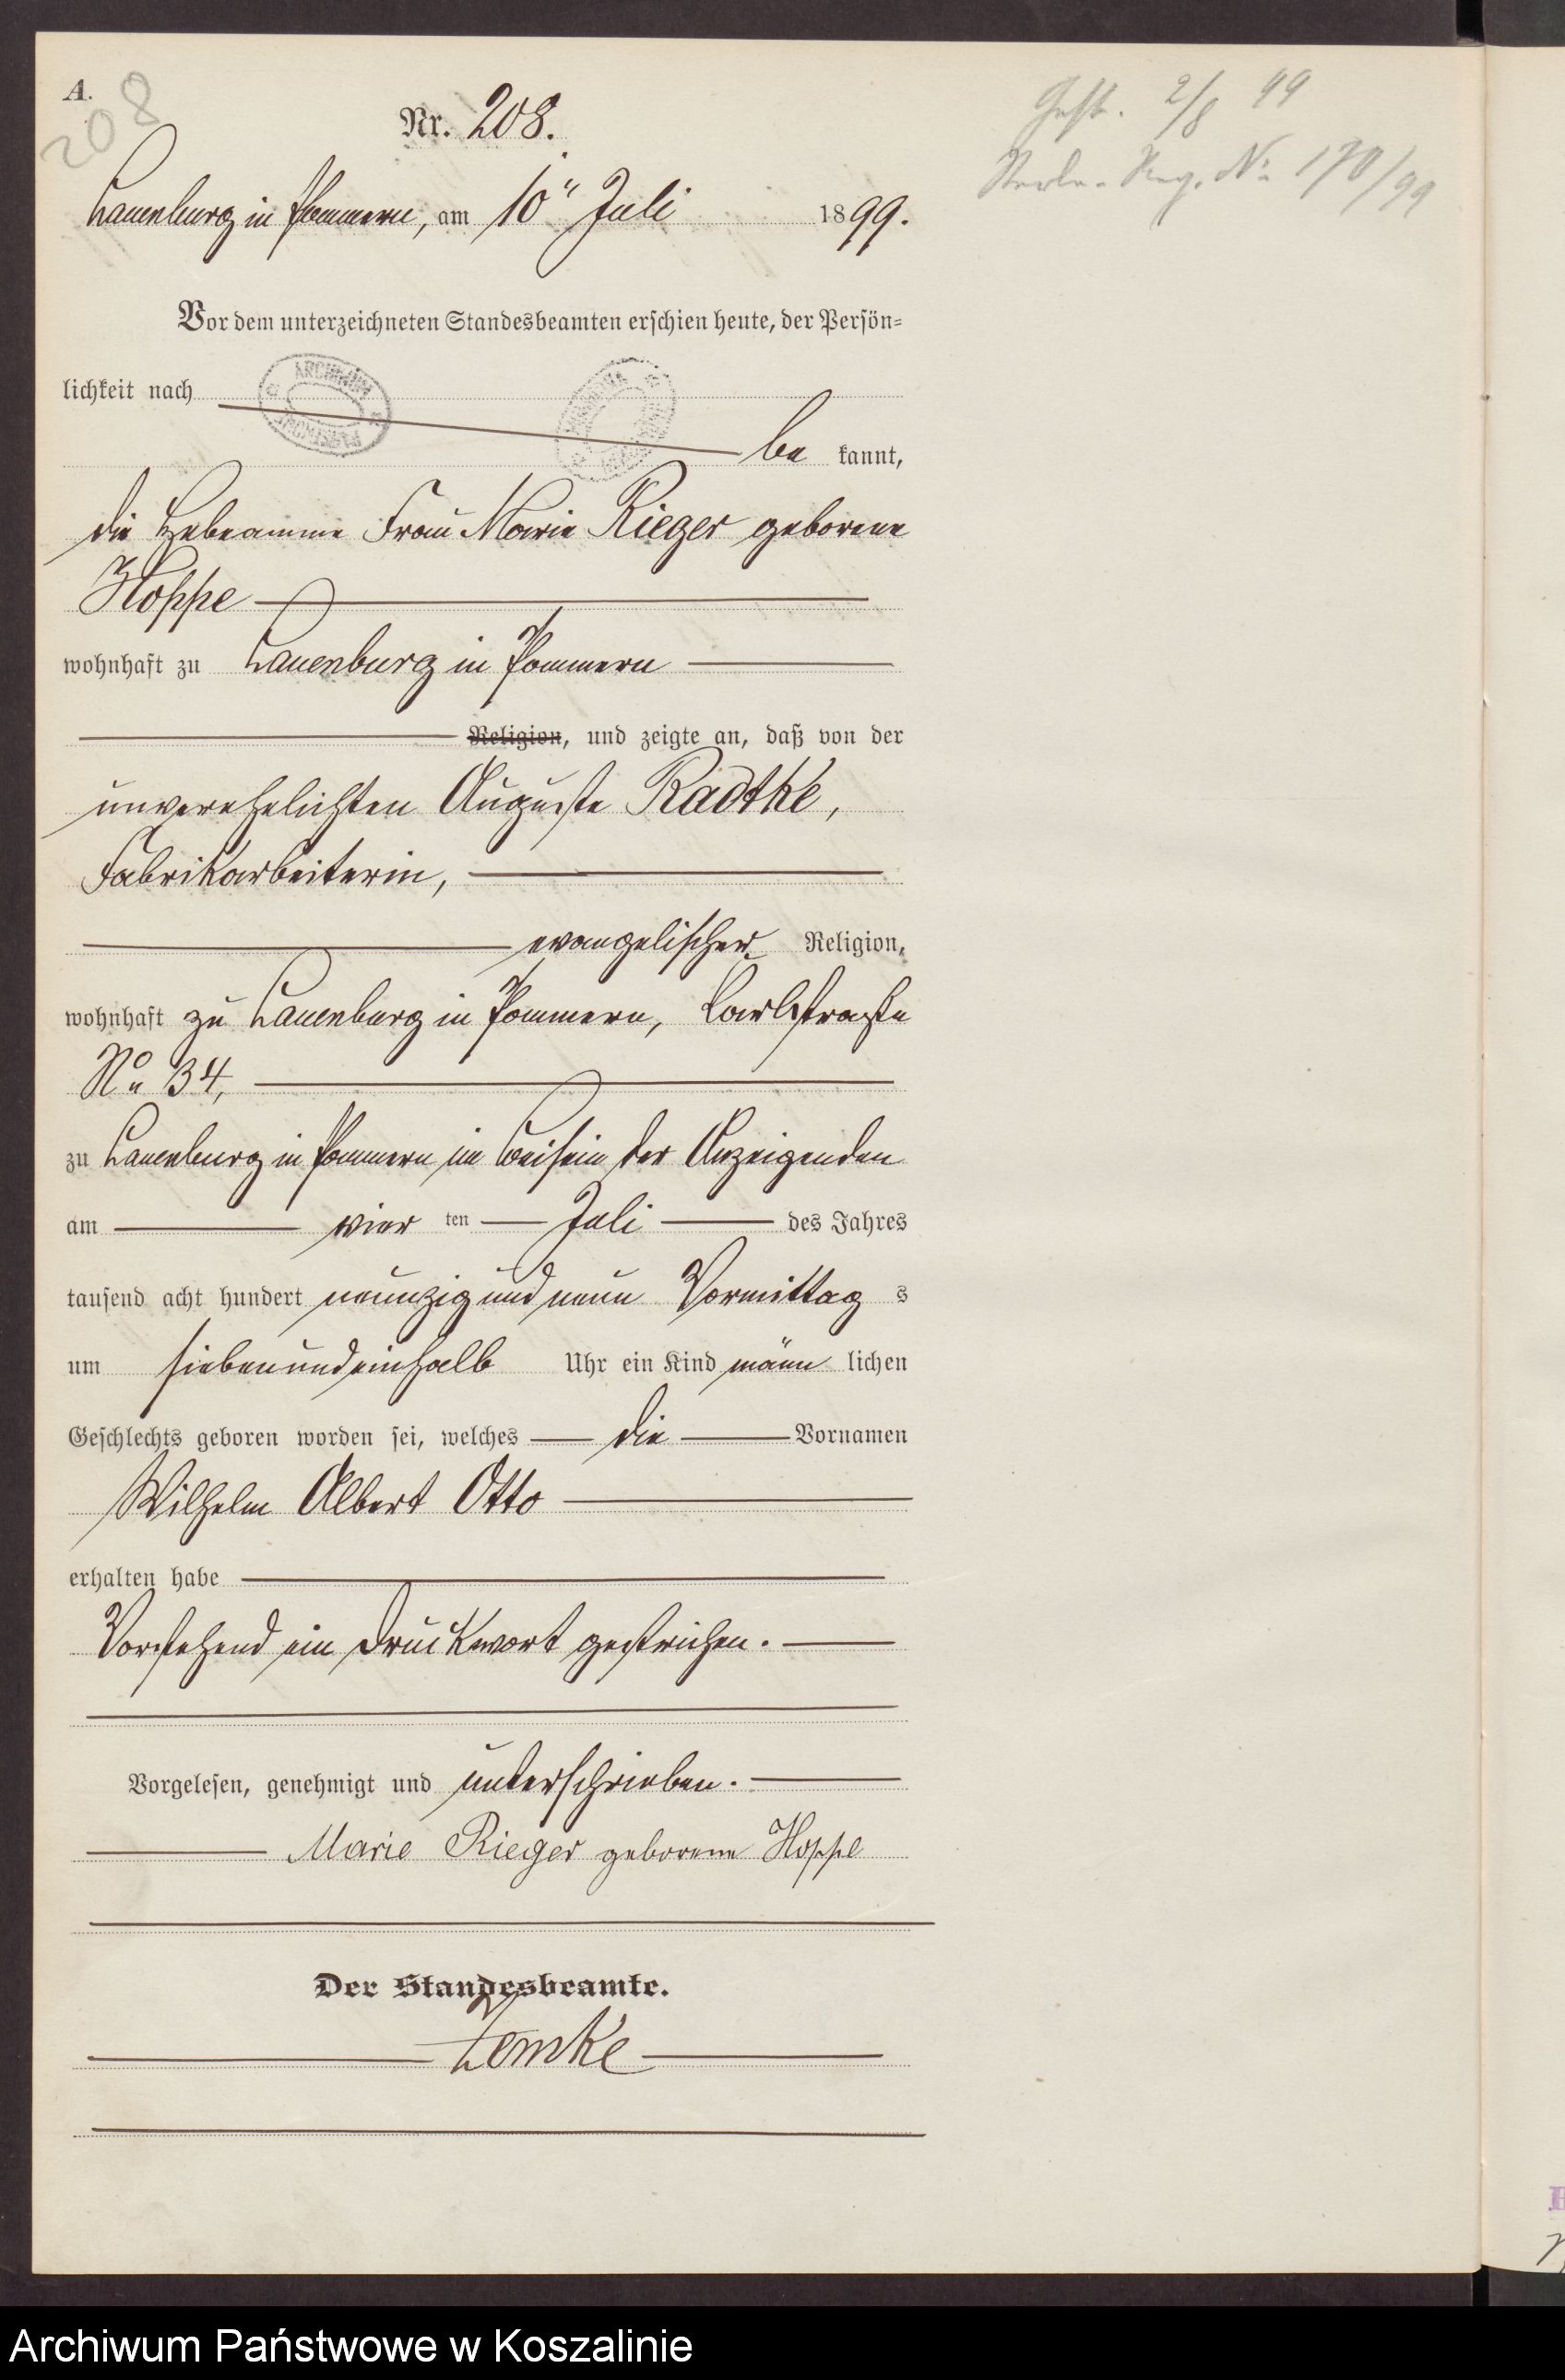 A.
208
Nr. 208.
Gest. 2/8 99
Sterbe-Reg. No 170/99
Lauenburg in Pommern, am 10ten Juli 1899.
Vor dem unterzeichneten Standesbeamten erschien heute, der Persön=
lichkeit nach
ARCHIWUM
be kannt,
die Hebeamme Frau Marie Rieger geborene
Hoppe
wohnhaft zu Lauenburg in Pommern
Religion, und zeigte an, daß von der
unverehelichten Auguste Radtke,
Fabrikarbeiterin,
evangelischer Religion,
wohnhaft zu Lauenburg in Pommern, Carlstraße
No 34,
zu Lauenburg in Pommern im Beisein der Anzeigenden
am vier ten Juli des Jahres
tausend acht hundert neunzig und neun Vormittag s
um sieben und einhalb Uhr ein Kind männ lichen
Geschlechts geboren worden sei, welches die Vornamen
Wilhelm Albert Otto
erhalten habe
Vorstehend ein Druckwort gestrichen.
Vorgelesen, genehmigt und unterschrieben.
Marie Rieger geborene Hoppe
Der Standesbeamte.
Lemke
Archiwum Państwowe w Koszalinie